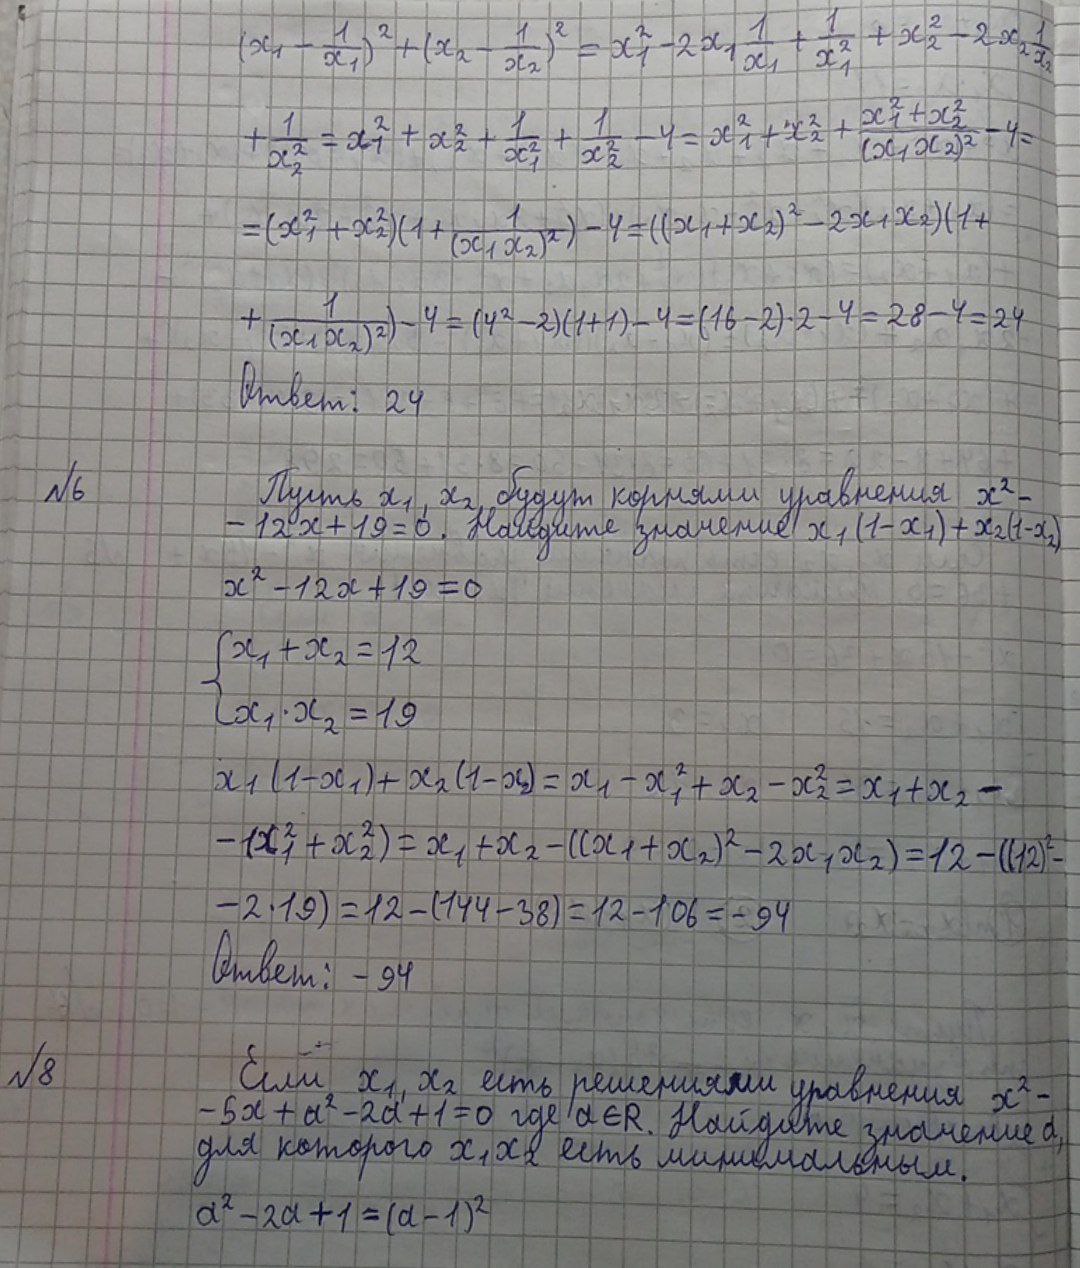 (x₁ - 1/x₁)² + (x₂ - 1/x₂)² = x₁² - 2x₁ 1/x₁ + 1/x₁² + x₂² - 2x₂ 1/x₂
+ 1/x₂² = x₁² + x₂² + 1/x₁² + 1/x₂² - 4 = x₁² + x₂² + (x₁² + x₂²)/(x₁x₂)² - 4 =
= (x₁² + x₂²)(1 + 1/(x₁x₂)²) - 4 = ((x₁ + x₂)² - 2x₁x₂)(1 +
+ 1/(x₁x₂)²) - 4 = (4² - 2)(1+1) - 4 = (16 - 2)·2 - 4 = 28 - 4 = 24
Ответ: 24
№6 Пусть x₁, x₂ будут корнями уравнения x² -
- 12x + 19 = 0. Найдите значение x₁(1-x₁) + x₂(1-x₂)
x² - 12x + 19 = 0
{ x₁ + x₂ = 12
x₁ · x₂ = 19
x₁(1-x₁) + x₂(1-x₂) = x₁ - x₁² + x₂ - x₂² = x₁ + x₂ -
- (x₁² + x₂²) = x₁ + x₂ - ((x₁ + x₂)² - 2x₁x₂) = 12 - ((12)² -
- 2·19) = 12 - (144 - 38) = 12 - 106 = -94
Ответ: -94
№8 Если x₁, x₂ есть решениями уравнения x² -
- 5x + a² - 2a + 1 = 0 где a ∈ R. Найдите значение a,
для которого x₁x₂ есть минимальным.
a² - 2a + 1 = (a - 1)²